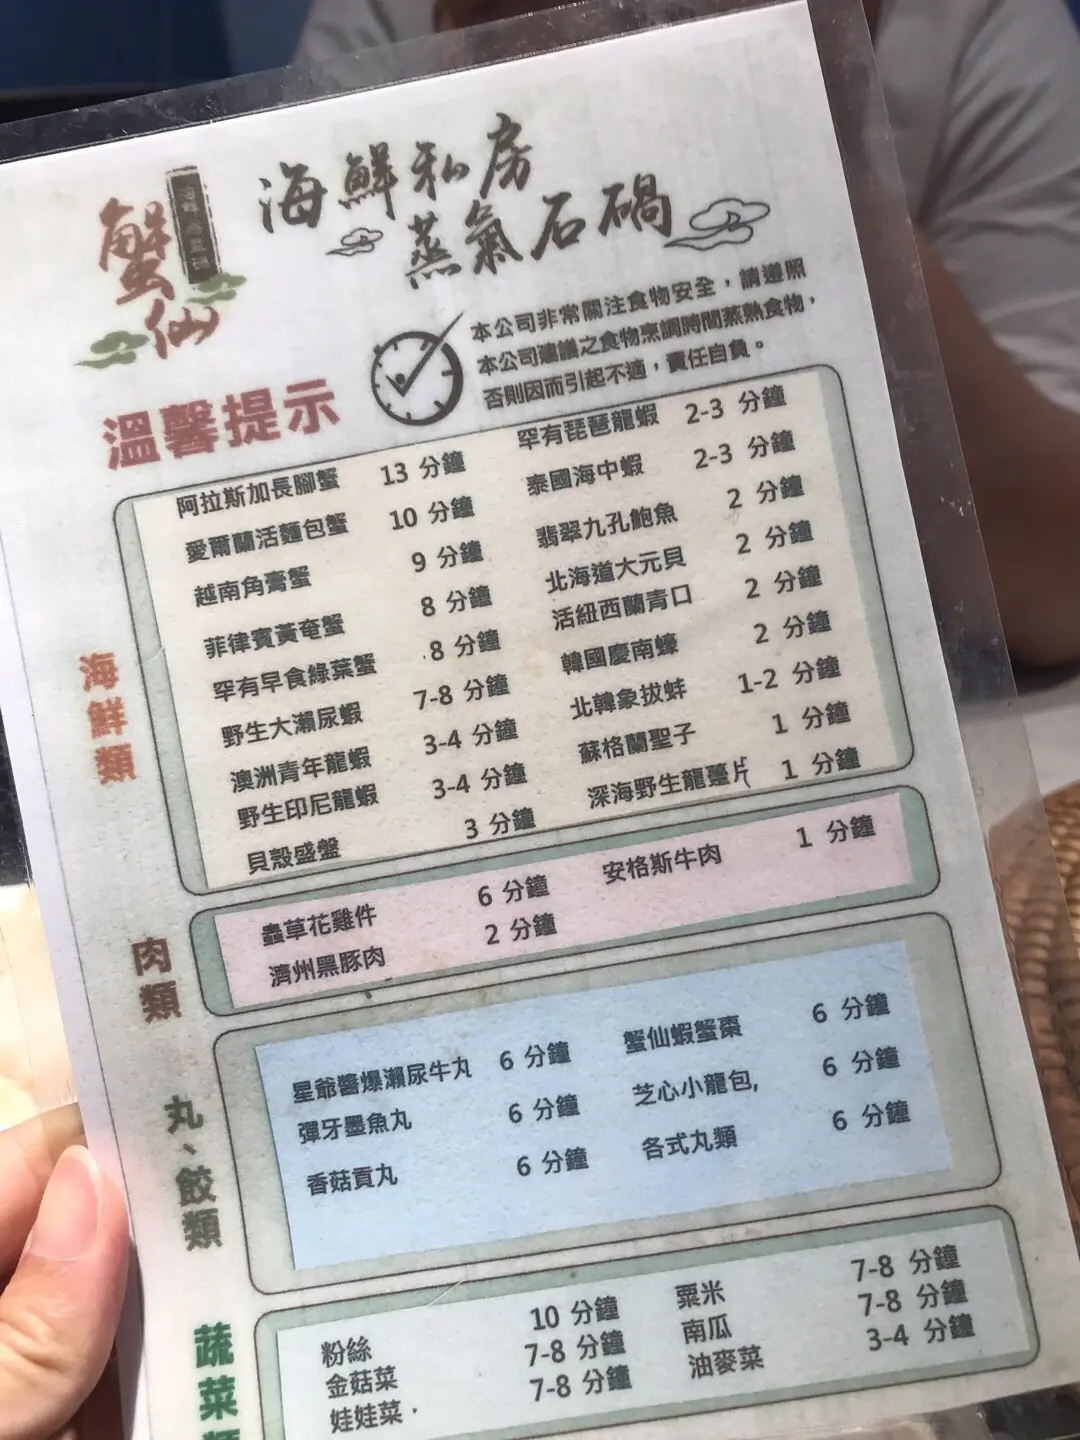 蟹仙
海鮮私房
蒸氣石鍋
溫馨提示
本公司非常關注食物安全，請遵照
本公司建議之食物烹調時間蒸熟食物，
否則因而引起不適，責任自負。
海鮮類
阿拉斯加長腳蟹 13 分鐘
愛爾蘭活麵包蟹 10 分鐘
越南角膏蟹 9 分鐘
菲律賓黃奄蟹 8 分鐘
罕有早食綠葉蟹 8 分鐘
野生大瀨尿蝦 7-8 分鐘
澳洲青年龍蝦 3-4 分鐘
野生印尼龍蝦 3-4 分鐘
貝殼盛盤 3 分鐘
罕有琵琶龍蝦 2-3 分鐘
泰國海中蝦 2-3 分鐘
翡翠九孔鮑魚 2 分鐘
北海道大元貝 2 分鐘
活紐西蘭青口 2 分鐘
韓國慶南蠔 2 分鐘
北韓象拔蚌 1-2 分鐘
蘇格蘭聖子 1 分鐘
深海野生龍躉片 1 分鐘
肉類
蟲草花雞件 6 分鐘
濟州黑豚肉 2 分鐘
安格斯牛肉 1 分鐘
丸、餃類
星爺醬爆瀨尿牛丸 6 分鐘
彈牙墨魚丸 6 分鐘
香菇貢丸 6 分鐘
蟹仙蝦蟹棗 6 分鐘
芝心小龍包, 6 分鐘
各式丸類 6 分鐘
蔬菜類
粉絲 10 分鐘
金菇菜 7-8 分鐘
娃娃菜 7-8 分鐘
粟米 7-8 分鐘
南瓜 7-8 分鐘
油麥菜 3-4 分鐘